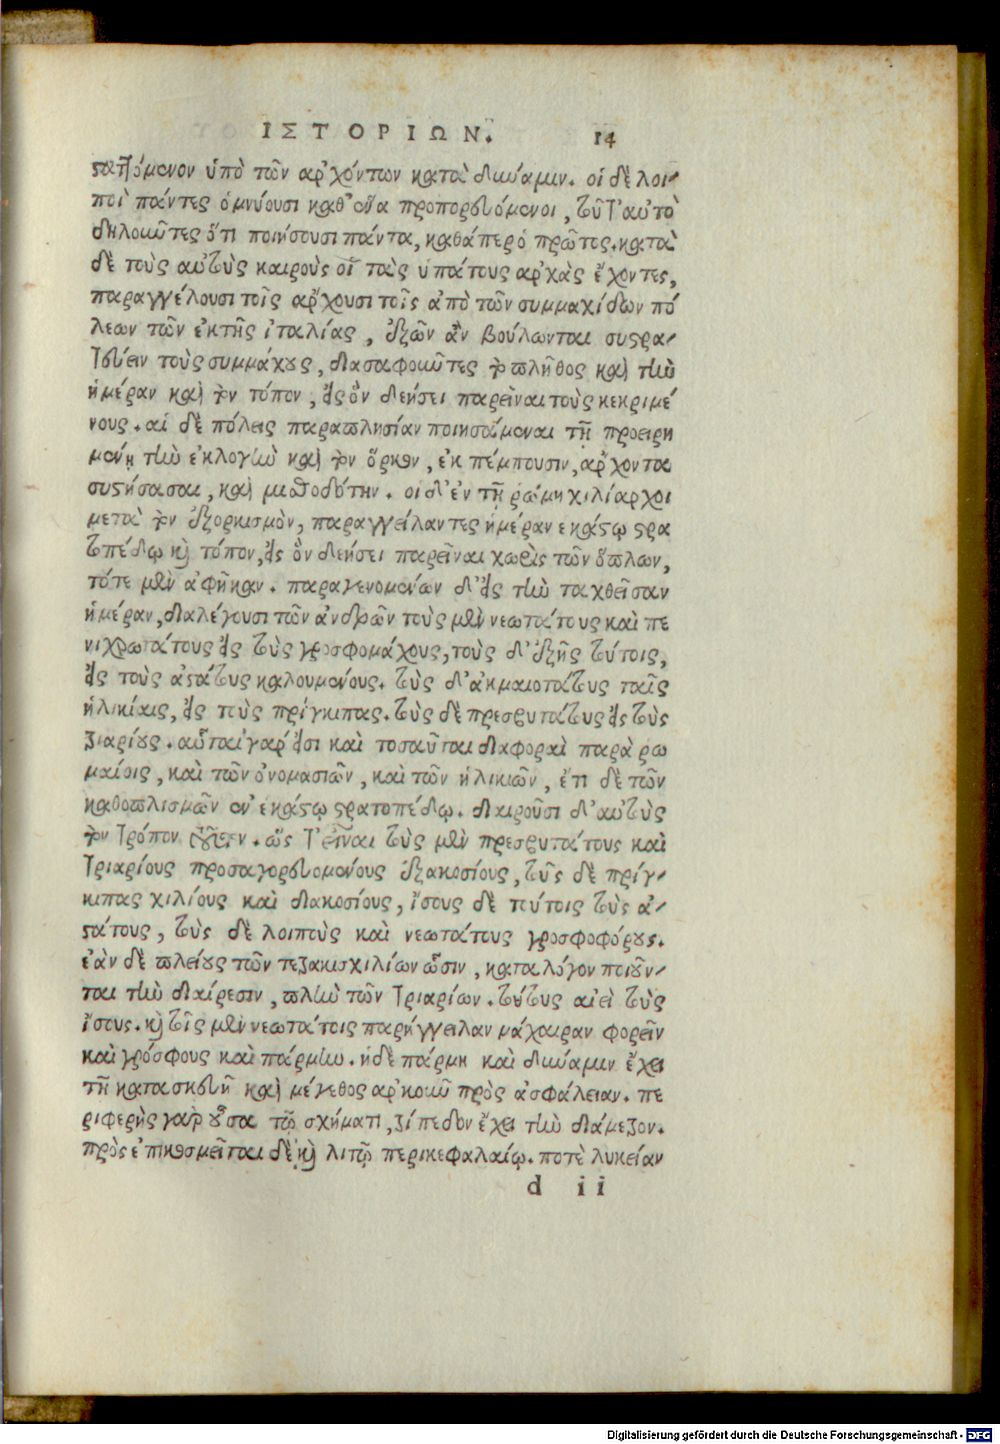 ΙΣΤΟΡΙΩΝ. 14
σαττόμενον ὑπὸ τῶν ἀρχόντων κατὰ δύναμιν. οἱ δὲ λοι-
ποὶ πάντες ὀμνύουσι καθ' ἕνα προπορευόμενοι, τοῦτ' αὐτὸ
δηλοῦντες ὅτι ποιήσουσι πάντα, καθάπερ ὁ πρῶτος. κατὰ
δὲ τοὺς αὐτοὺς καιροὺς οἱ τὰς ὑπάτους ἀρχὰς ἔχοντες,
παραγγέλουσι τοῖς ἄρχουσι τοῖς ἀπὸ τῶν συμμαχίδων πό
λεων τῶν ἐκ τῆς ἰταλίας, ἐξ ὧν ἂν βούλωνται συστρα-
τεύειν τοὺς συμμάχους, διασαφοῦντες τὸ πλῆθος καὶ τὴν
ἡμέραν καὶ τὸν τόπον, εἰς ὃν δεήσει παρεῖναι τοὺς κεκριμέ
νους. αἱ δὲ πόλεις παραπλησίαν ποιησάμεναι τῇ προειρη
μένῃ τὴν ἐκλογὴν καὶ τὸν ὅρκον, ἐκπέμπουσιν, ἄρχοντα
συστήσασαι, καὶ μισθοδότην. οἱ δ' ἐν τῇ ῥώμῃ χιλίαρχοι
μετὰ τὸν ἐξορκισμὸν, παραγγείλαντες ἡμέραν ἑκάστῳ στρα
τοπέδῳ καὶ τόπον, εἰς ὃν δεήσει παρεῖναι χωρὶς τῶν ὅπλων,
τότε μὲν ἀφῆκαν. παραγενομένων δ' εἰς τὴν ταχθεῖσαν
ἡμέραν, διαλέγουσι τῶν ἀνδρῶν τοὺς μὲν νεωτάτους καὶ πε
νιχρωτάτους εἰς τοὺς γροσφομάχους, τοὺς δ' ἑξῆς τούτοις,
εἰς τοὺς ἀστάτους καλουμένους. τοὺς δ' ἀκμαιοτάτους ταῖς
ἡλικίαις, εἰς τοὺς πρίγκιπας. τοὺς δὲ πρεσβυτάτους εἰς τοὺς
τριαρίους. αὗται γάρ εἰσι καὶ τοσαῦται διαφοραὶ παρὰ ῥω
μαίοις, καὶ τῶν ὀνομασιῶν, καὶ τῶν ἡλικιῶν, ἔτι δὲ τῶν
καθοπλισμῶν ἐν ἑκάστῳ στρατοπέδῳ. διαιροῦσι δ' αὐτοὺς
τὸν τρόπον τοῦτον. ὥς τ' εἶναι τοὺς μὲν πρεσβυτάτους καὶ
τριαρίους προσαγορευομένους ἑξακοσίους, τοὺς δὲ πρίγ-
κιπας χιλίους καὶ διακοσίους, ἴσους δὲ τούτοις τοὺς ἀ-
στάτους, τοὺς δὲ λοιποὺς καὶ νεωτάτους γροσφοφόρους.
ἐὰν δὲ πλείους τῶν τετρακισχιλίων ὦσιν, κατὰ λόγον ποιοῦν-
ται τὴν διαίρεσιν, πλὴν τῶν τριαρίων. τούτους αἰεὶ τοὺς
ἴσους. καὶ τοῖς μὲν νεωτάτοις παρήγγειλαν μάχαιραν φορεῖν
καὶ γρόσφους καὶ πάρμην. ἡ δὲ πάρμη καὶ δύναμιν ἔχει
τῇ κατασκευῇ καὶ μέγεθος ἀρκοῦν πρὸς ἀσφάλειαν. πε
ριφερὴς γὰρ οὖσα τῷ σχήματι, τρίπεδον ἔχει τὴν διάμετρον.
προσεπικοσμεῖται δὲ καὶ λιτῷ περικεφαλαίῳ. ποτὲ λυκείαν
d ii
Digitalisierung gefördert durch die Deutsche Forschungsgemeinschaft - DFG